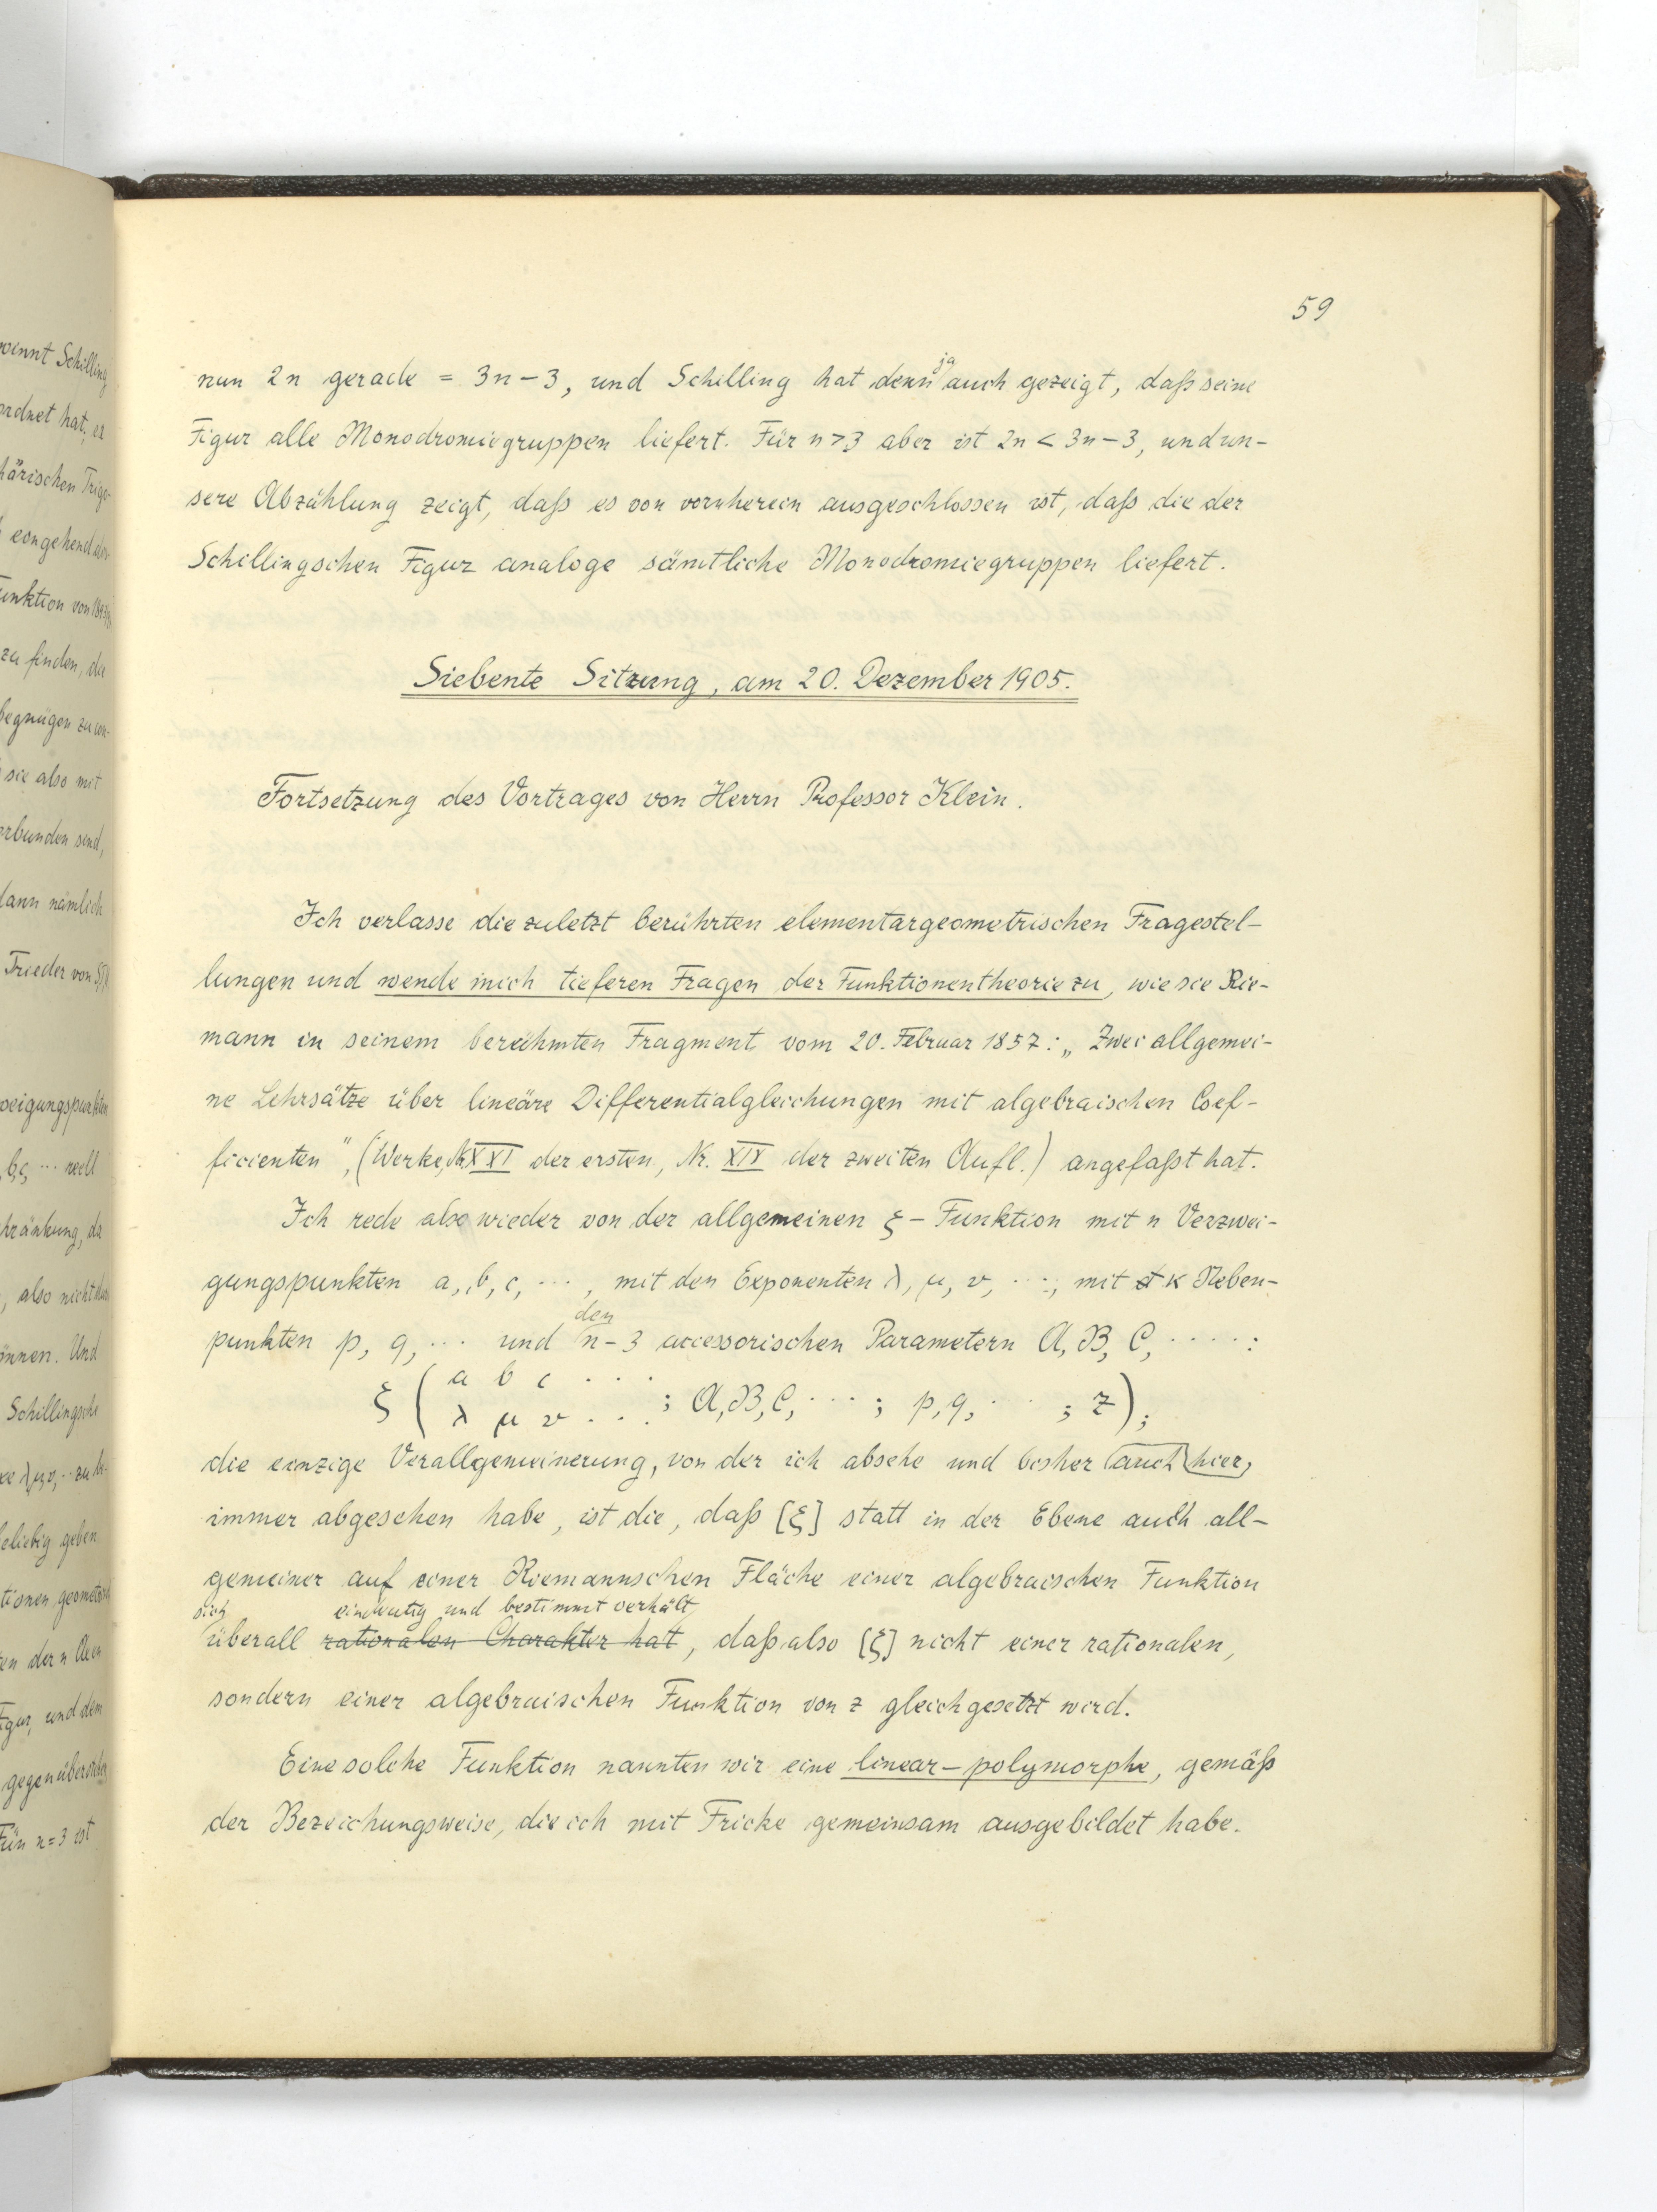 59
nun 2n gerade = 3n-3, und Schilling hat denn ja auch gezeigt, daß seine
Figur alle Monodromiegruppen liefert. Für n>3 aber ist 2n < 3n-3, und un-
sere Abzählung zeigt, daß es von vornherein ausgeschlossen ist, daß die der
Schillingschen Figur analoge sämtliche Monodromiegruppen liefert.
Siebente Sitzung, am 20. Dezember 1905.
Fortsetzung des Vortrages von Herrn Professor Klein.
Ich verlasse die zuletzt berührten elementargeometrischen Fragestel-
lungen und wende mich tieferen Fragen der Funktionentheorie zu, wie sie Rie-
mann in seinem berühmten Fragment vom 20. Februar 1857: „Zwei allgemei-
ne Lehrsätze über lineäre Differentialgleichungen mit algebraischen Coef-
ficienten", (Werke, Nr. XXI der ersten, Nr. XIX der zweiten Aufl.) angefaßt hat.
Ich rede also wieder von der allgemeinen ξ-Funktion mit n Verzwei-
gungspunkten a, b, c, ..., mit den Exponenten λ, μ, ν, ..., mit κ Neben-
punkten p, q, ... und den n-3 accessorischen Parametern A, B, C, .....:
ξ ( a b c ...
λ μ ν ... ; A, B, C, ...; p, q, ... ; z);
die einzige Verallgemeinerung, von der ich absehe und bisher auch hier,
immer abgesehen habe, ist die, daß [ξ] statt in der Ebene auch all-
gemeiner auf einer Riemannschen Fläche einer algebraischen Funktion
sich eindeutig und bestimmt verhält
überall rationalen Charakter hat, daß also [ξ] nicht einer rationalen,
sondern einer algebraischen Funktion von z gleichgesetzt wird.
Eine solche Funktion nannten wir eine linear-polymorphe, gemäß
der Bezeichungsweise, die ich mit Fricke gemeinsam ausgebildet habe.